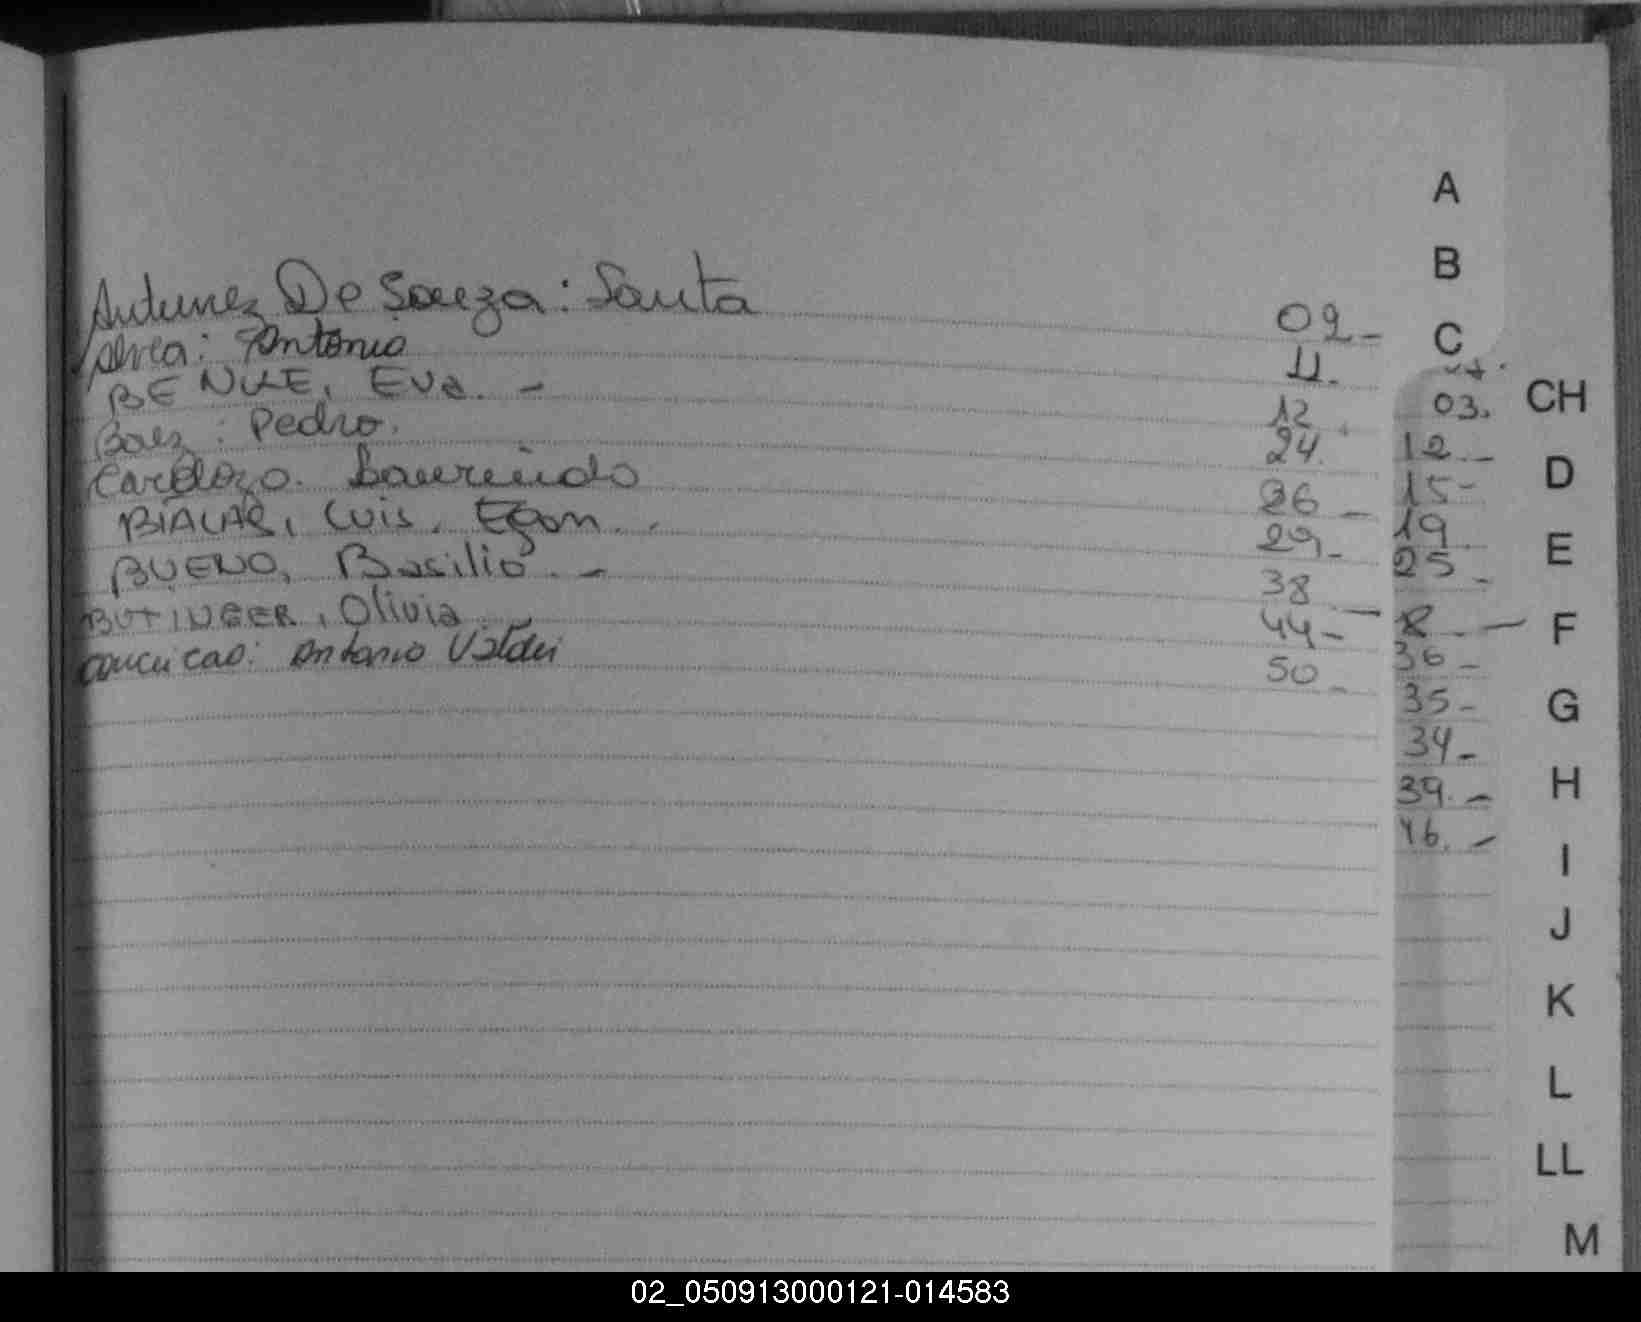 A
B
C
Antunez De Souza: Santa 02-
Antonio 11.
BENKE, Eva. - 12
Baez: Pedro. 24.
Cardozo. Laurindo 26-
BIALAS, Luis. Egon. 29-
BUENO, Basilio. - 38
BUTINGER, Olivia 44-
Antonio Valdei 50-
03.
12.-
15-
19
25-
36-
35-
34-
39.-
46.-
CH
D
E
F
G
H
I
J
K
L
LL
M
02_050913000121-014583